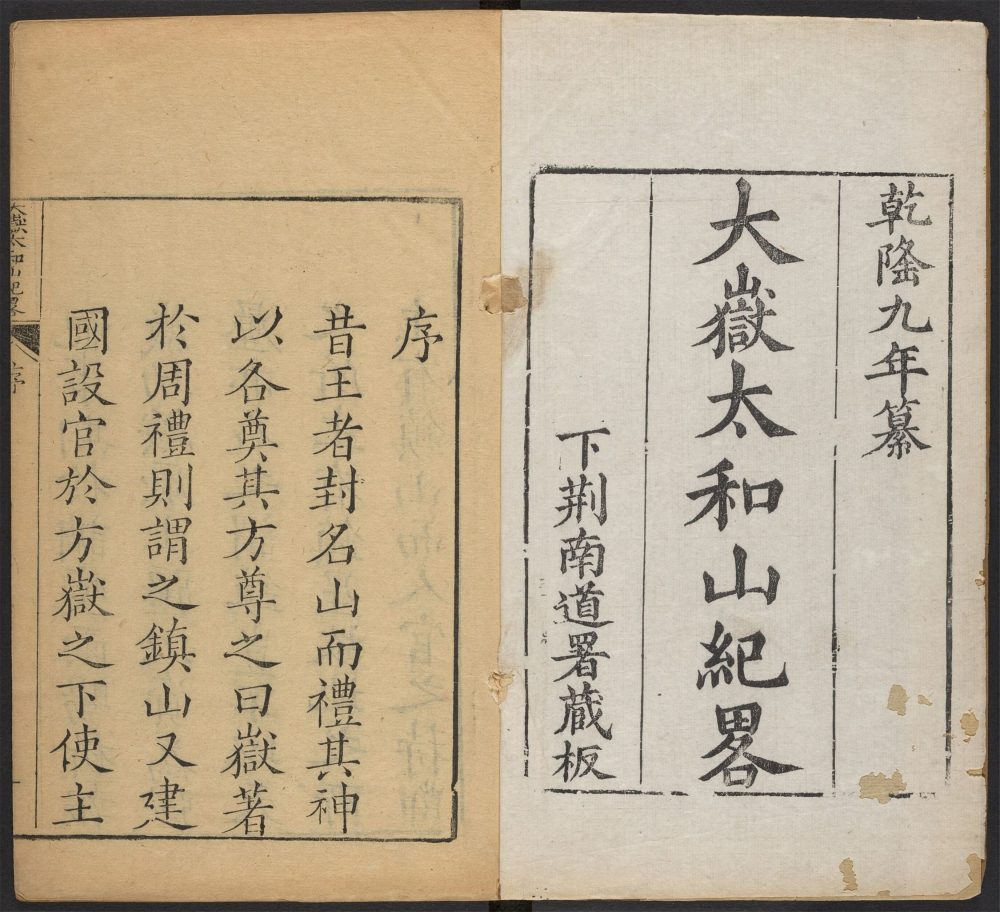 乾隆九年纂
大嶽太和山紀畧
下荆南道署蔵板
序
昔王者封名山而禮其神
以各奠其方尊之曰嶽著
於周禮則謂之鎮山又建
國設官於方嶽之下使主
大嶽太和山紀畧
序